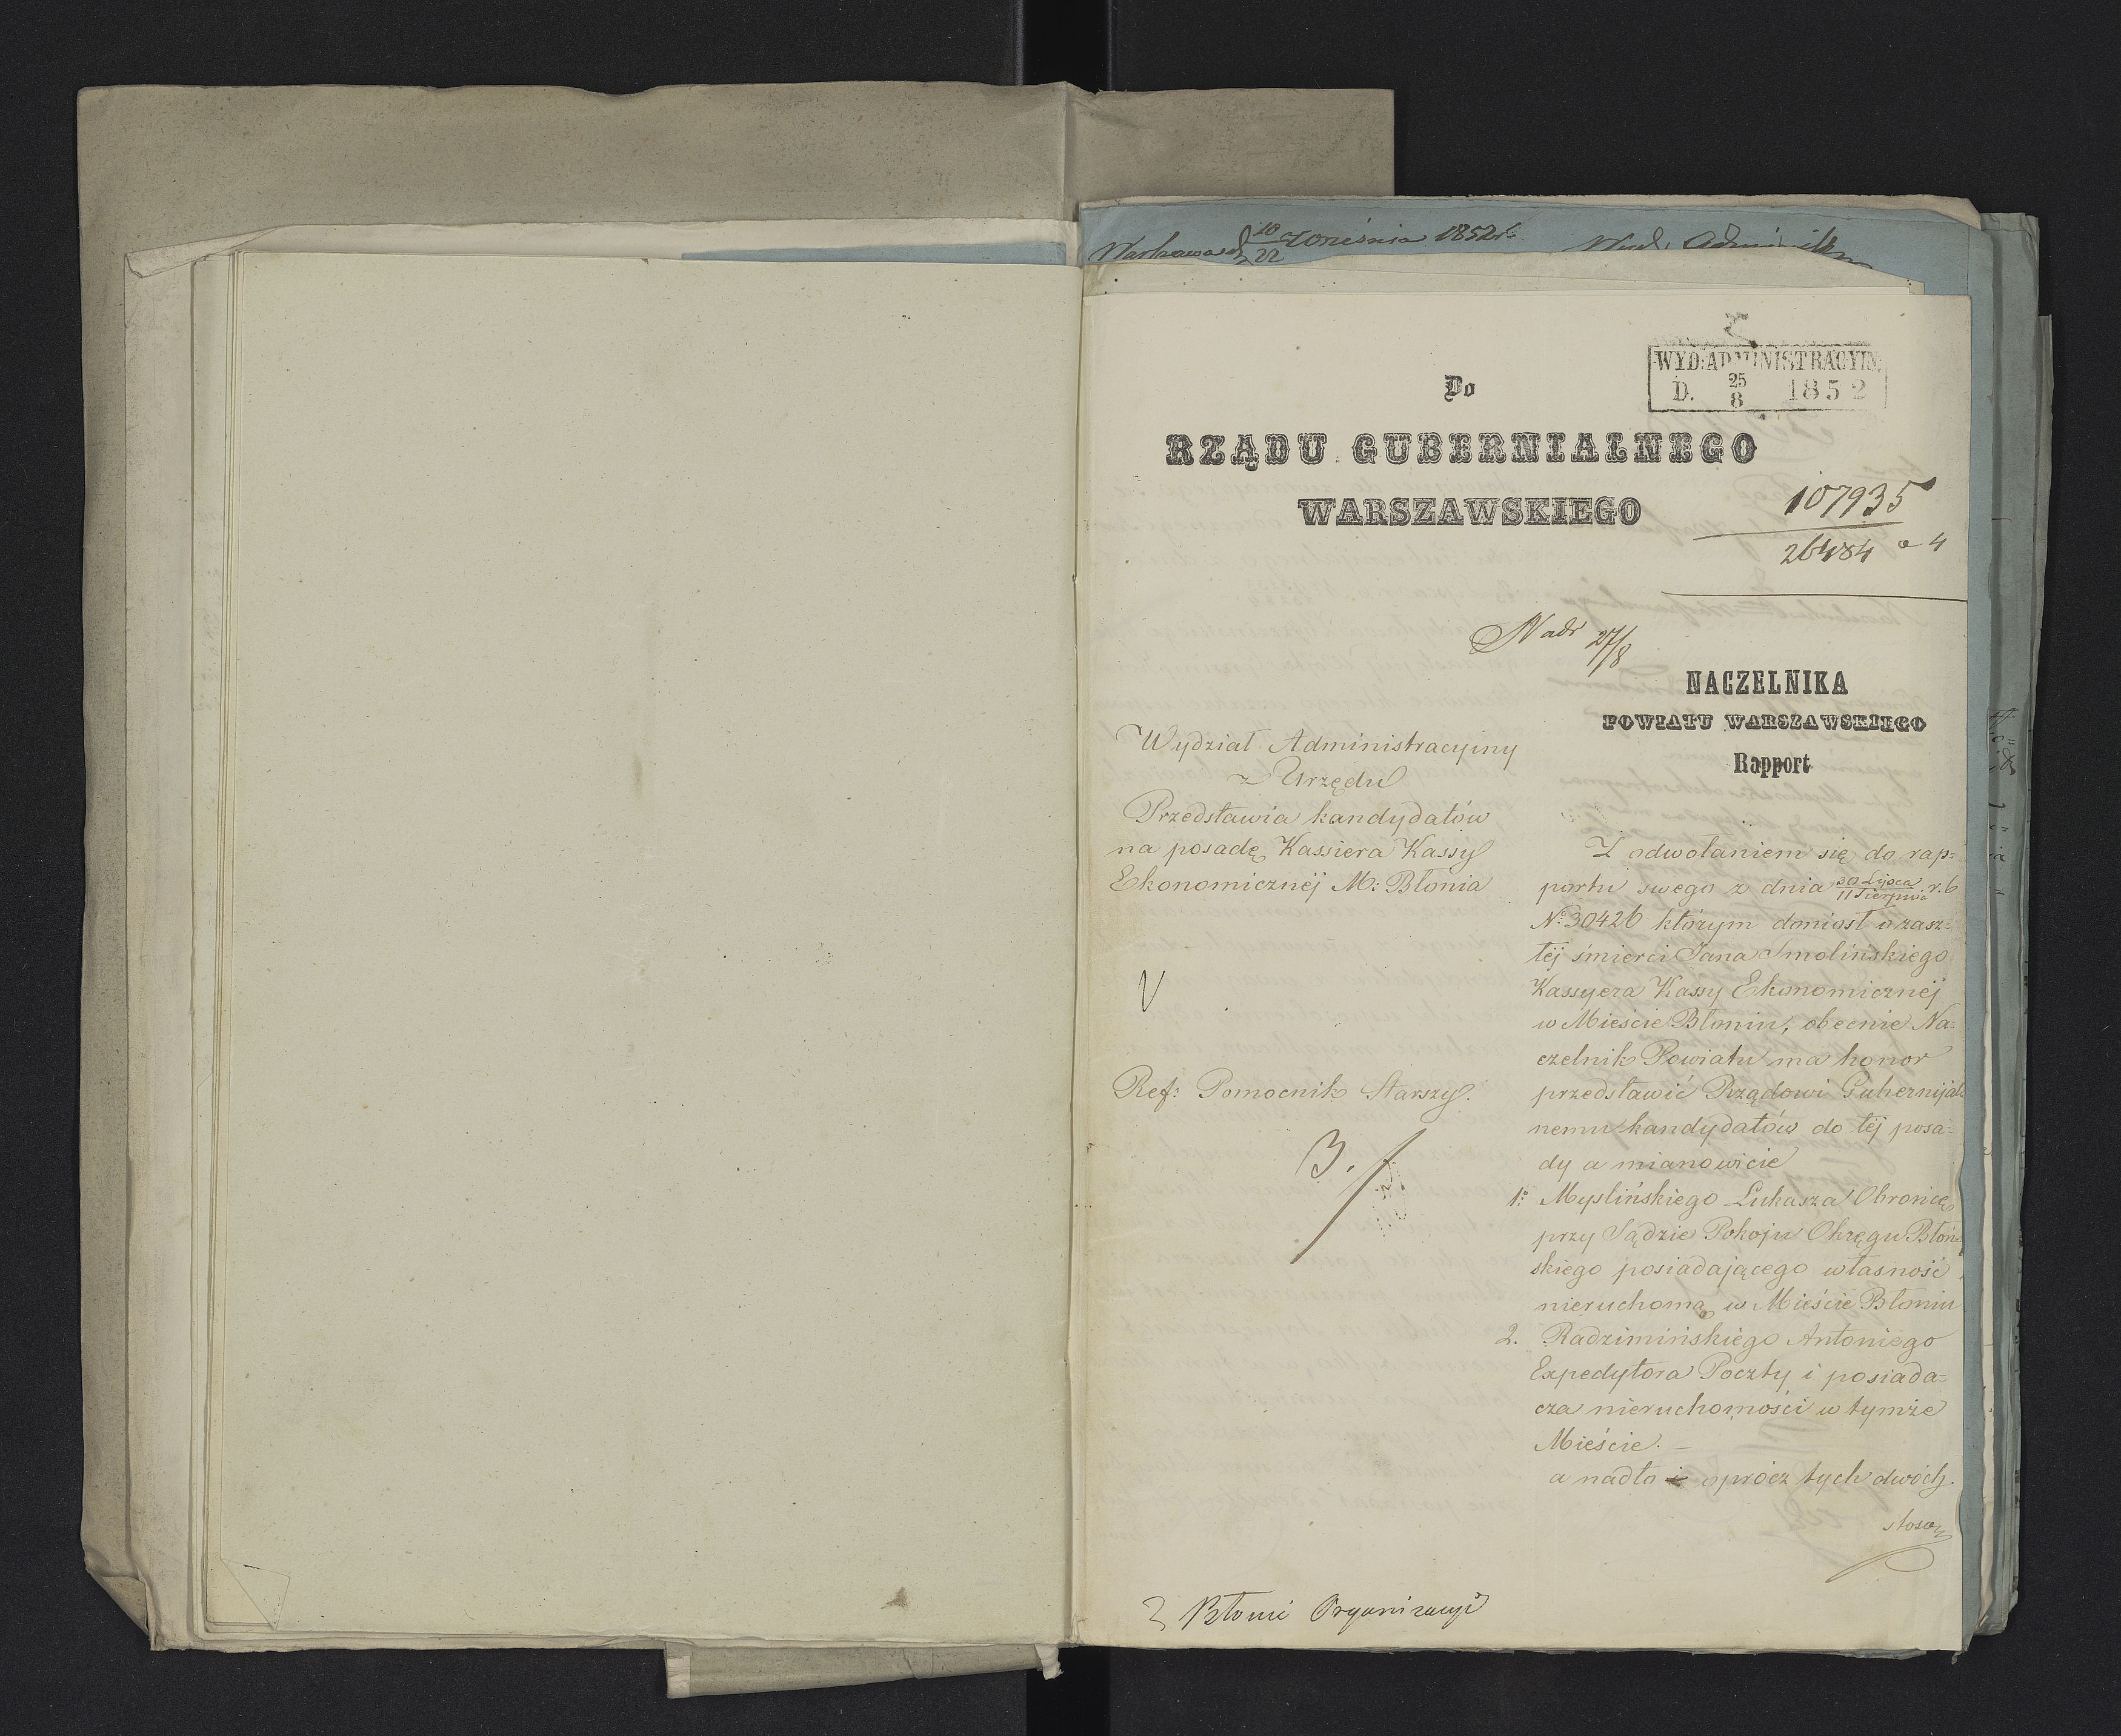 Warszawa d. 10/22 Września 1852 r.
Wyd. Admi
WYD: ADMINISTRACYJN.
D. 25/8 1852
Do
RZĄDU GUBERNIALNEGO
WARSZAWSKIEGO
107935
26484 a 4
Nadr 27/8
NACZELNIKA
POWIATU WARSZAWSKIEGO
Rapport
Wydział Administracyjny
z Urzędu
Przedstawia kandydatów
na posadę Kassiera Kassy
Ekonomicznéj M: Błonia
V
Ref: Pomocnik Starszy.
3.
Z odwołaniem się do rap=
portu swego z dnia 30 Lipca/11 Sierpnia r. b
No 30426 którym doniosł o zasz=
łéj śmierci Jana Smolińskiego
Kassyera Kassy Ekonomicznéj
w Mieście Błoniu, obecnie Na=
czelnik Powiatu ma honor
przedstawić Rządowi Gubernijal=
nemu kandydatów do téj posa=
dy a mianowicie
1o Myslińskiego Łukasza Obronicę
przy Sądzie Pokoju Okręgu Błoń=
skiego posiadającego własność
nieruchomą w Mieście Błoniu
2. Radzimińskiego Antoniego
Expedytora Poczty i posiada=
cza nieruchomości w tymże
Mieście. —
a nadto oprócz tych dwóch.
stosow
Błonie Organizacyi